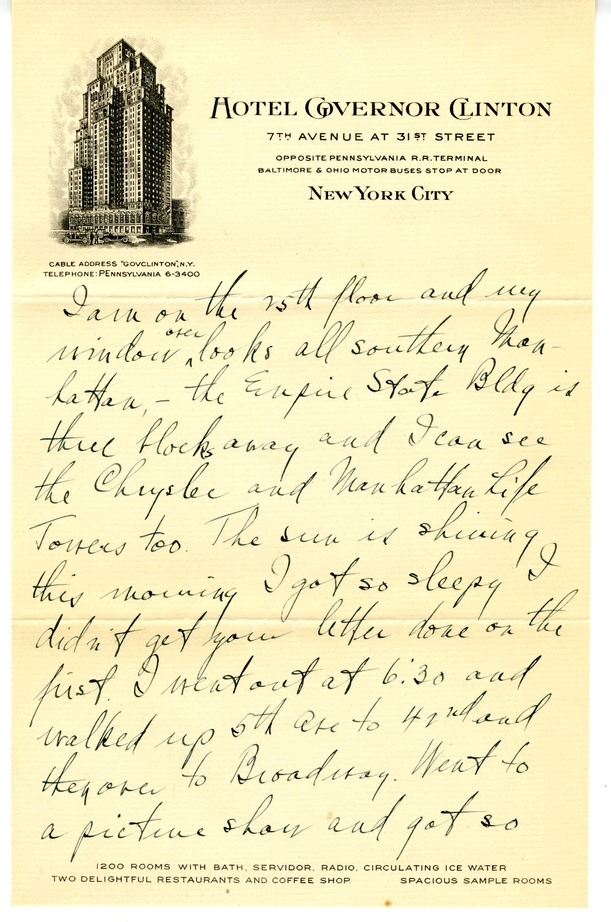 HOTEL GOVERNOR CLINTON
7TH AVENUE AT 31ST STREET
OPPOSITE PENNSYLVANIA R.R. TERMINAL
BALTIMORE & OHIO MOTOR BUSES STOP AT DOOR
NEW YORK CITY
CABLE ADDRESS "GOVCLINTON", N.Y.
TELEPHONE: PENNSYLVANIA 6-3400
I am on the 25th floor and my
window over looks all southern Man-
hattan, – the Empire State Bldg is
three blocks away and I can see
the Chrysler and Manhattan Life
Towers too. The sun is shining
this morning I got so sleepy I
didn't get your letter done on the
first. I went out at 6:30 and
walked up 5th Ave to 42nd and
then over to Broadway. Went to
a picture show and got so
1200 ROOMS WITH BATH, SERVIDOR, RADIO, CIRCULATING ICE WATER
TWO DELIGHTFUL RESTAURANTS AND COFFEE SHOP. SPACIOUS SAMPLE ROOMS